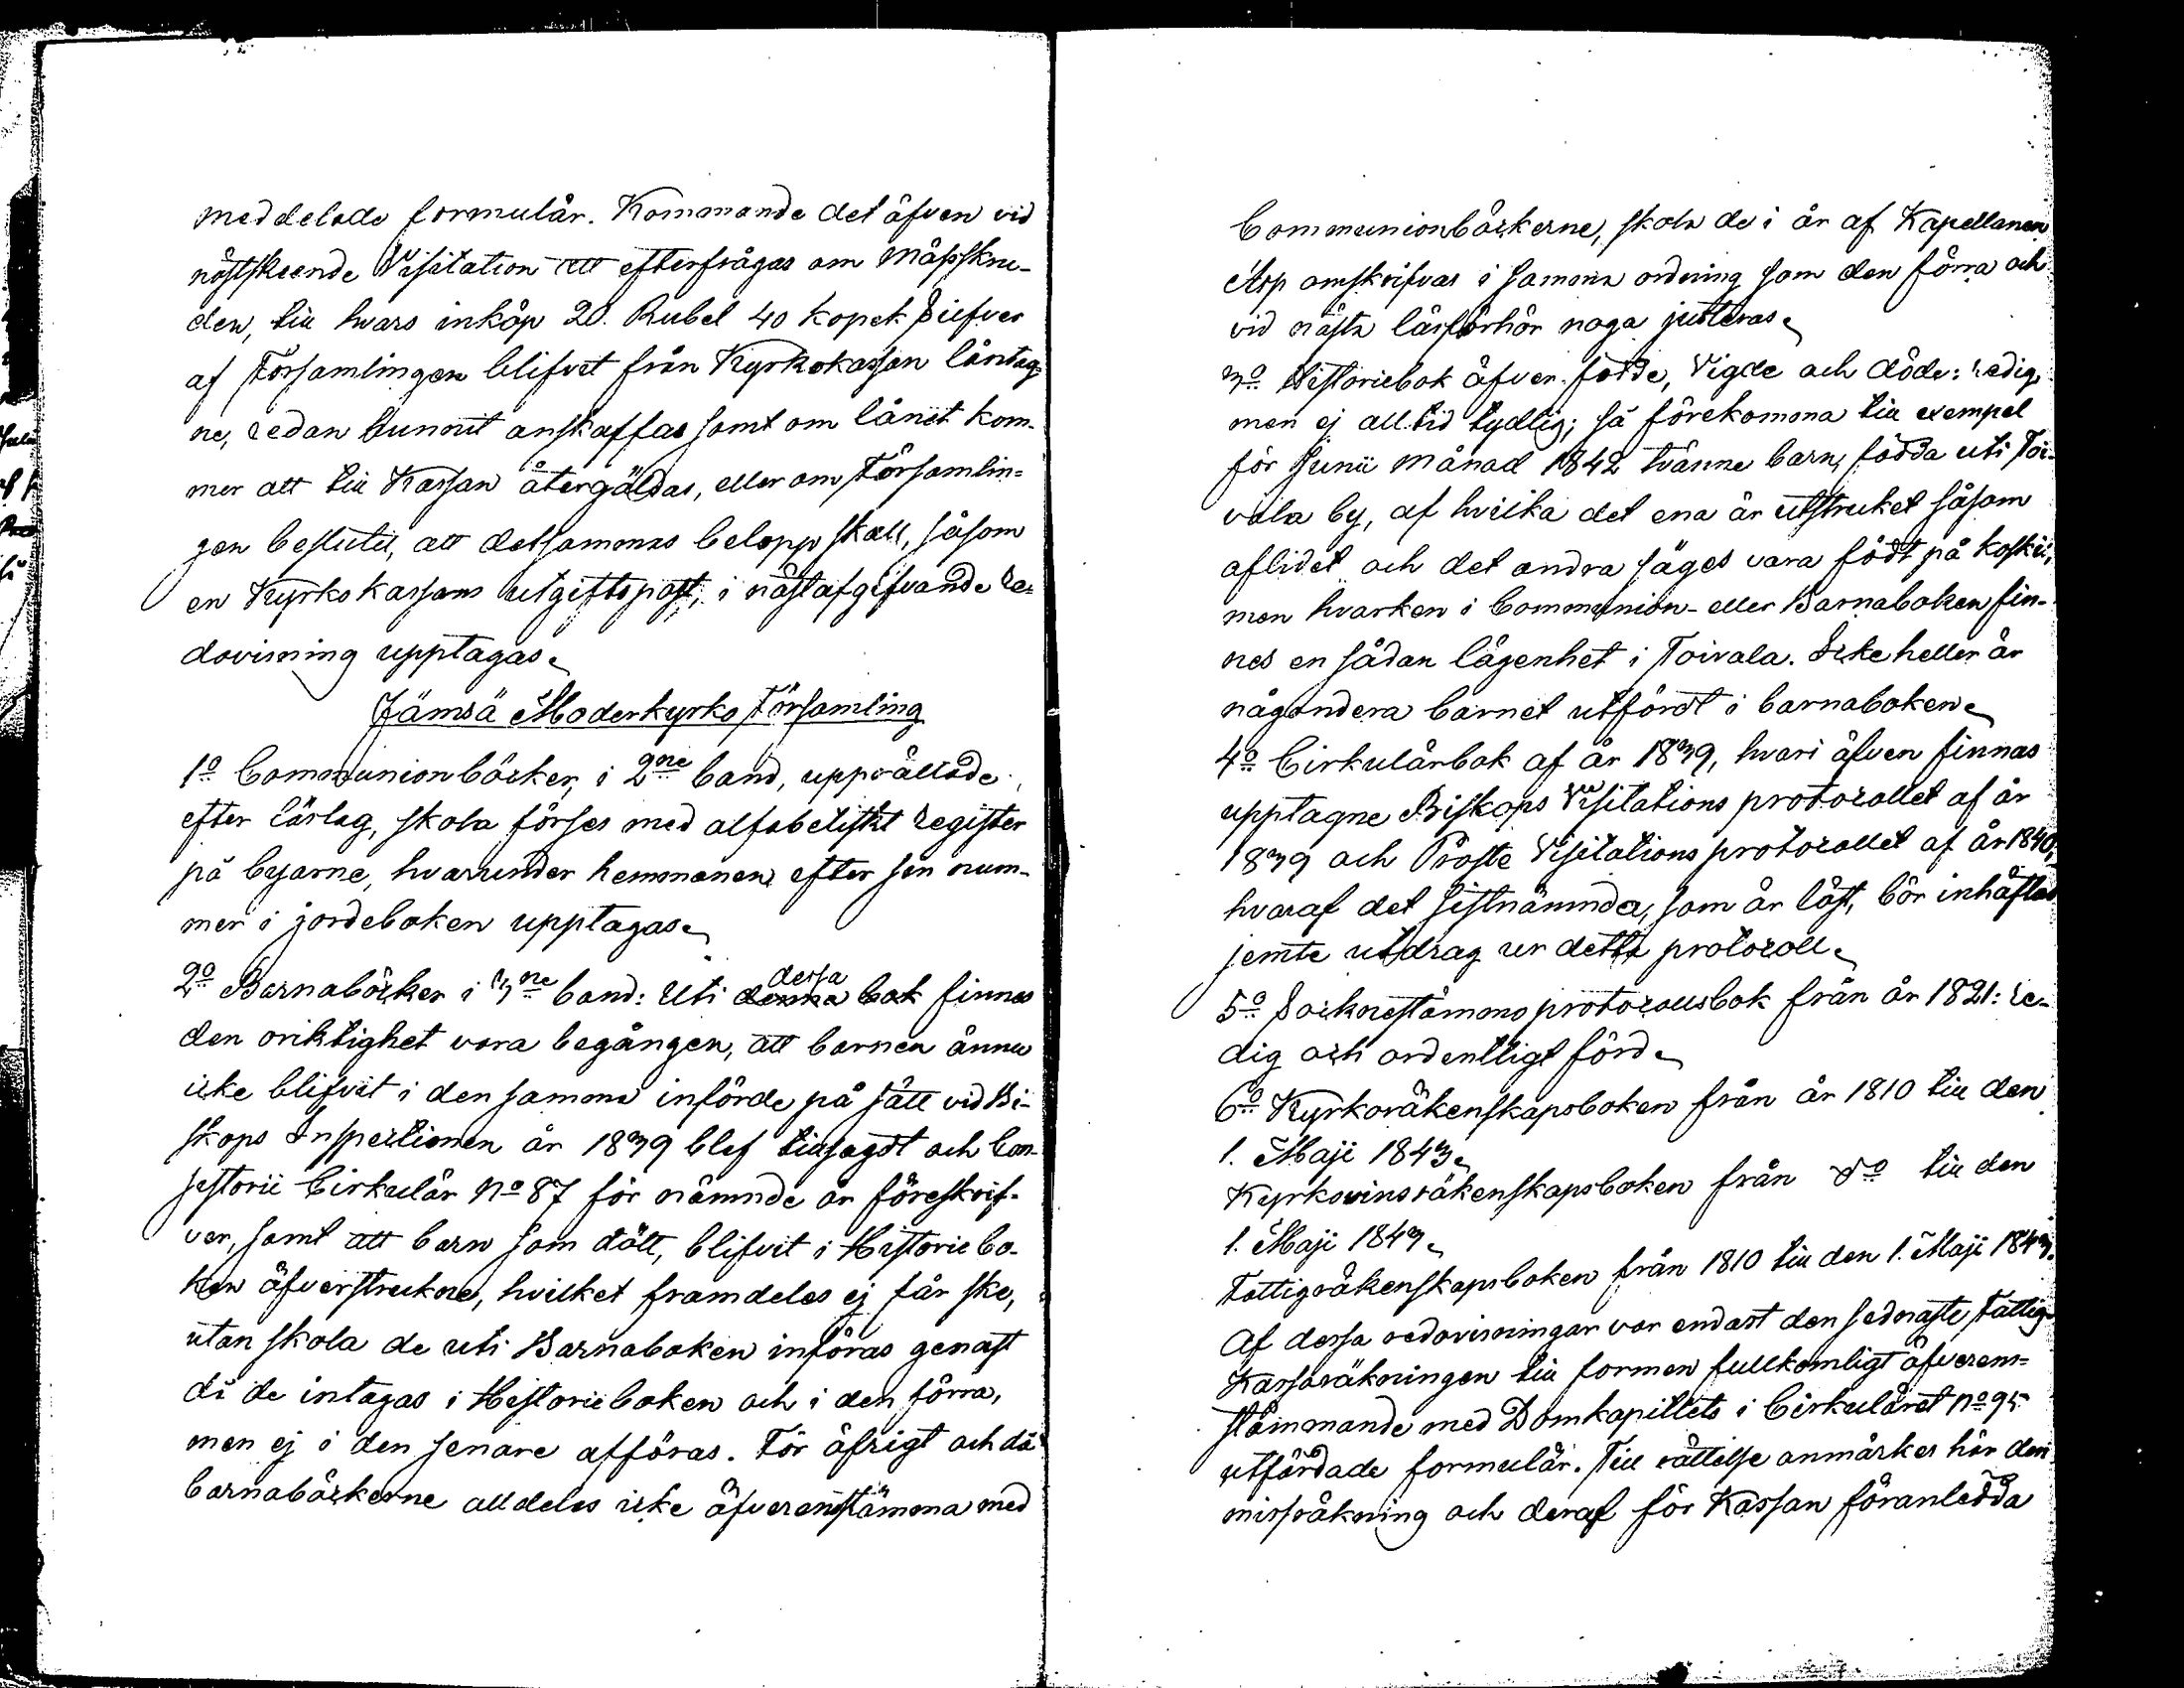 meddelade formulär. Kommande det äfven vid
nästskeende Visitation att efterfrågas om Mässkru-
den, till hvars inköp 20. Rubel 40 kopek Silfver
af Församlingen blifvit från Kyrkokassan låntag-
ne, redan hunnit anskaffas samt om lånet kom-
mer att till Kassan återgäldas, eller om Församlin-
gen beslutit, att detsammas belopp skall, såsom
en Kyrkokassans utgiftspost, i nästafgifvande re-
dovisning upptagas.
Jämsä Moderkyrko Församling
1º Communionböcker, i 2ne band, upprättade
efter lärlag, skola förses med alfabetiskt register
på byarne, hvarunder hemmanen efter sin num-
mer i jordeboken upptagas.
2º Barnaböcker i 3ne band: Uti denna dessa bok finnas
den oriktighet vara begången, att barnen ännu
icke blifvit i densamma införde på sätt vid Bi-
skops Inspectionen år 1839 blef tillsagdt och Con-
sistorii Cirkulär No 87 för nämnde år föreskrif-
ver, samt att barn som dött, blifvit i Historiebo-
ken äfverstrukne, hvilket framdeles ej får ske,
utan skola de uti Barnaboken införas genast
då de intagas i Historieboken och i den förra,
men ej i den senare afföras. För äfrigt och då
barnaböckerne alldeles icke äfverensstämma med
Communionböckerne, skola de i år af Kapellanen
Asp omskrifvas i samma ordning som den förra och
vid nästa läsförhör noga justeras.
3º Historiebok äfver födde, Vigde och döde: redig,
men ej alltid tydlig; så förekomma till exempel
för Junii månad 1842 tvänne barn, födda uti Toi-
vala by, af hvilka det ena är utstruket såsom
aflidet och det andra säges vara födt på Koskii,
men hvarken i Communion- eller Barnaboken fin-
nes en sådan lägenhet i Toivala. Icke heller är
någondera barnet utfördt i barnaboken.
4º Cirkulärbok af år 1839, hvari äfven finnas
upptagne Biskops Visitations protocollet af år
1839 och Proste Visitations protocollet af år 1840,
hvaraf det sistnämnda, som är löst, bör inhäftas
jemte utdrag ur detta protocoll.
5º Socknestämmo protocollsbok från år 1821: re-
dig och ordentligt förd.
6º Kyrkoräkenskapsboken från år 1810 till den
1. Maji 1843.
Kyrkovinsräkenskapsboken från dº till den
1. Maji 1843.
Fattigräkenskapsboken från 1810 till den 1. Maji 1843.
Af dessa redovisningar var endast den sednaste Fattig-
Kassaräkningen till formen fullkomligt äfverens-
stämmande med Domkapitlets i Cirkuläret No 95
utfärdade formulär. Till rättelse anmärkes här den
missräkning och deraf för Kassan föranledda